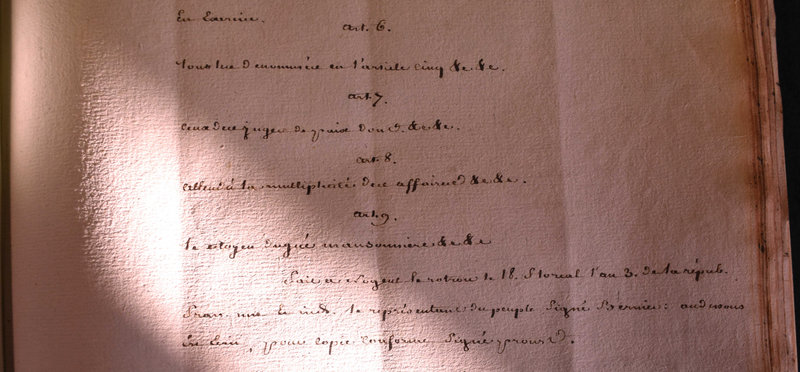 En Exercice.
Art. 6.
tous les dénommés en l'article cinq &c &c.
Art. 7.
ceux des juges de paix dont &c &c.
Art. 8.
attendu la multiplicité des affaires &c &c.
Art. 9.
Le citoyen dugué maisonnière &c &c
Fait a Nogent le rotrou le 18. floreal l'an 3. de la répub.
fran. une & ind. le représentant du peuple signé Bernier: au dessous
est écrit, pour copie conforme signé proust.